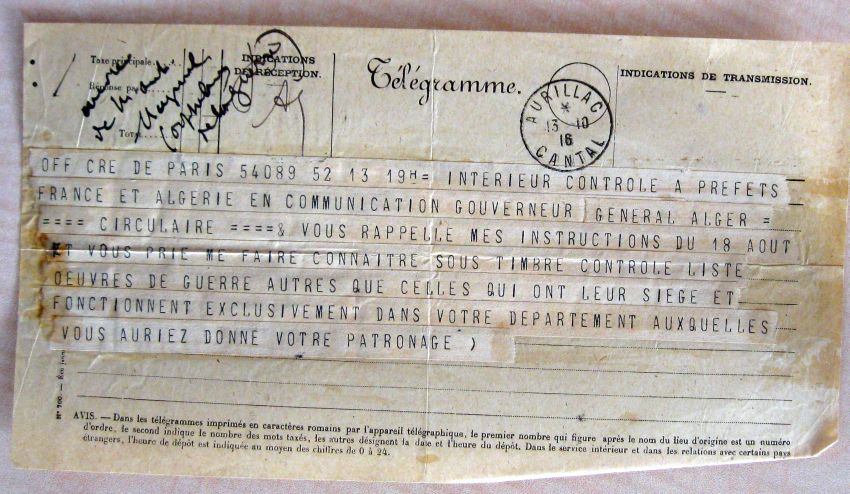 Taxe principale
Réponse payée
Total
INDICATIONS
DE RÉCEPTION.
Télégramme.
AURILLAC
*
13-10
16
CANTAL
INDICATIONS DE TRANSMISSION.
oeuvre
de la
orphelins
de la guerre
OFF CRE DE PARIS 54089 52 13 19H= INTERIEUR CONTROLE A PREFETS
FRANCE ET ALGERIE EN COMMUNICATION GOUVERNEUR GENERAL ALGER =
==== CIRCULAIRE ====& VOUS RAPPELLE MES INSTRUCTIONS DU 18 AOUT
ET VOUS PRIE ME FAIRE CONNAITRE SOUS TIMBRE CONTROLE LISTE
OEUVRES DE GUERRE AUTRES QUE CELLES QUI ONT LEUR SIEGE ET
FONCTIONNENT EXCLUSIVEMENT DANS VOTRE DEPARTEMENT AUXQUELLES
VOUS AURIEZ DONNE VOTRE PATRONAGE )
N° 700.
AVIS. — Dans les télégrammes imprimés en caractères romains par l'appareil télégraphique, le premier nombre qui figure après le nom du lieu d'origine est un numéro
d'ordre, le second indique le nombre des mots taxés, les autres désignent la date et l'heure du dépôt. Dans le service intérieur et dans les relations avec certains pays
étrangers, l'heure de dépôt est indiquée au moyen des chiffres de 0 à 24.